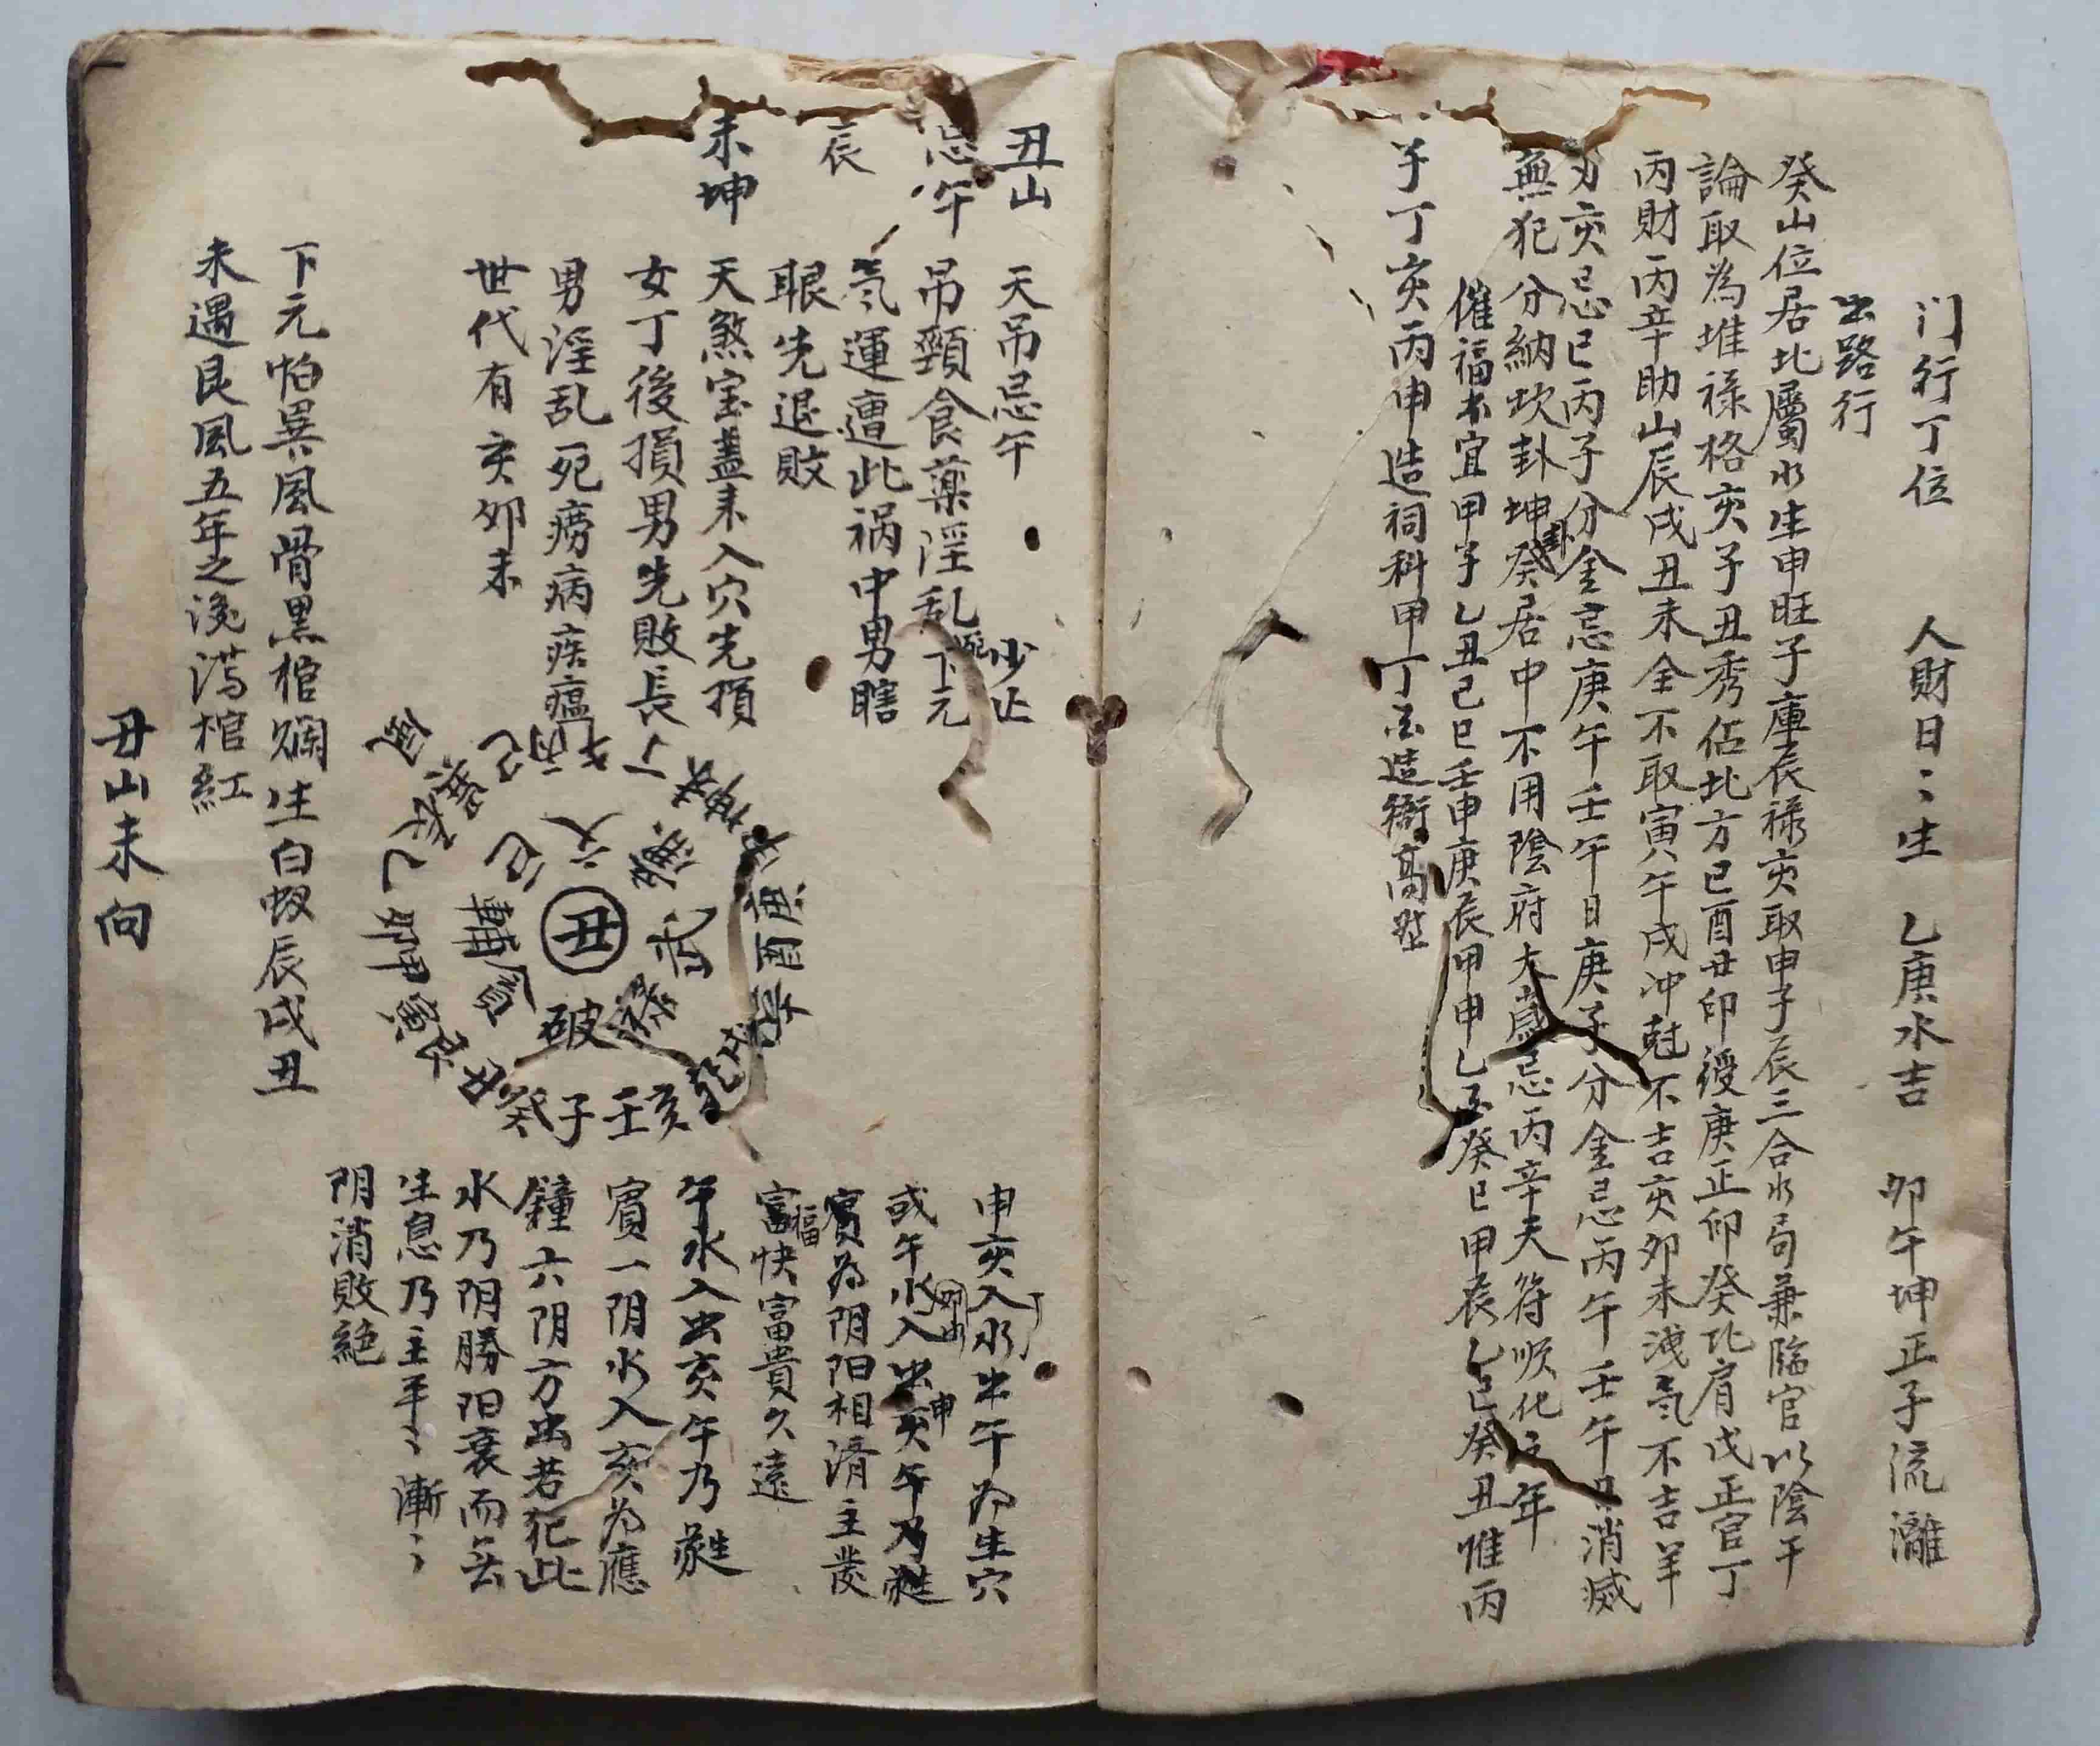 门行丁位　人財日々生　乙庚水吉　卯午坤正子流灕
出路行
癸山位居北屬水生申旺子庫辰禄亥取申子辰三合水局兼臨官以陰干
論取為堆禄格亥子丑秀佔北方巳酉丑印綬庚正印癸比肩戊正官丁
丙財丙辛助山辰戌丑未全不取寅午戌冲尅不吉亥卯未洩氣不吉羊
刃亥忌巳丙子分金忌庚午壬午日庚子分金忌丙午壬午日消滅
無犯分納坎卦坤卦癸居中不用陰府太歲忌丙辛天符順化之年
催福不宜甲子乙丑己巳壬申庚辰甲申乙亥癸巳甲辰乙巳癸丑惟丙
子丁亥丙申造祠科甲丁亥造衙高堂
丑山　天吊忌午　少止
忌午　吊頸食藥淫乱死下元
辰　氣運遭此祸中男瞎
眼先退敗
未坤　天煞宝盖未入穴先損
女丁後損男先敗長
男淫乱死癆病疾瘟
世代有亥卯未
下元怕巽風骨黑棺爛生白蚁辰戌丑
未遇艮風五年之後满棺紅
丑山未向
丑
破
禄
武
文
輔
癸子壬亥
申亥入水出午为生穴
或午水入出亥午乃
賓为阴阳相済主發
福
富快富貴久遠
午水入出亥午乃
賓一阴水入亥为應
鐘六阴方出若犯此
水乃阴勝阳衰而云
生息乃主平々漸々
阴消敗絕